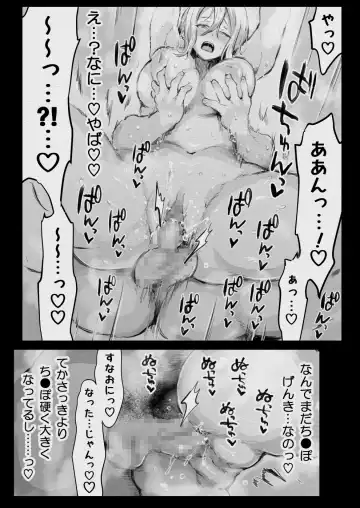 やっ♡
ぱんっ♡
ぱんっ♡
ぱんっ♡
え…？なに…♡やば♡♡
～～っ…?!…♡
ぱちゅんっ♡
ああんっ…！♡
あっ…♡
～～…っ♡
ぱんっ♡
ぱんっ♡
ぱんっ♡
ぱんっ♡
ぱんっ♡
ぱんっ♡
なんでまだち●ぽ
げんき…なのっ♡
ぬちっ♡
ぬちゅっ♡
ぬちっ♡
ぬちゅっ♡
すなおにっ♡
なった…じゃんっ♡
てかさっきより
ち●ぽ硬く大きく
なってるし……っ♡